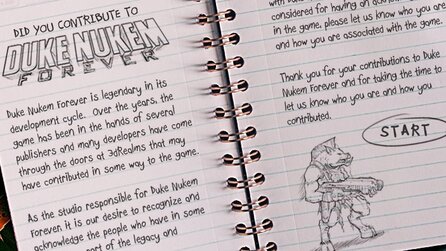 DID YOU CONTRIBUTE TO
DUKE NUKEM
FOREVER
Duke Nukem Forever is legendary in its
development cycle. Over the years, the
game has been in the hands of several
publishers and many developers have come
through the doors at 3dRealms that may
have contributed in some way to the game.
As the studio responsible for Duke Nukem
Forever, it is our desire to recognize and
acknowledge the people who have in some
part of the legacy and
considered for having an
in the game, please let us know who you are
and how you are associated with the game.
Thank you for your contributions to Duke
Nukem Forever and for taking the time to
let us know who you are and how you
contributed.
START